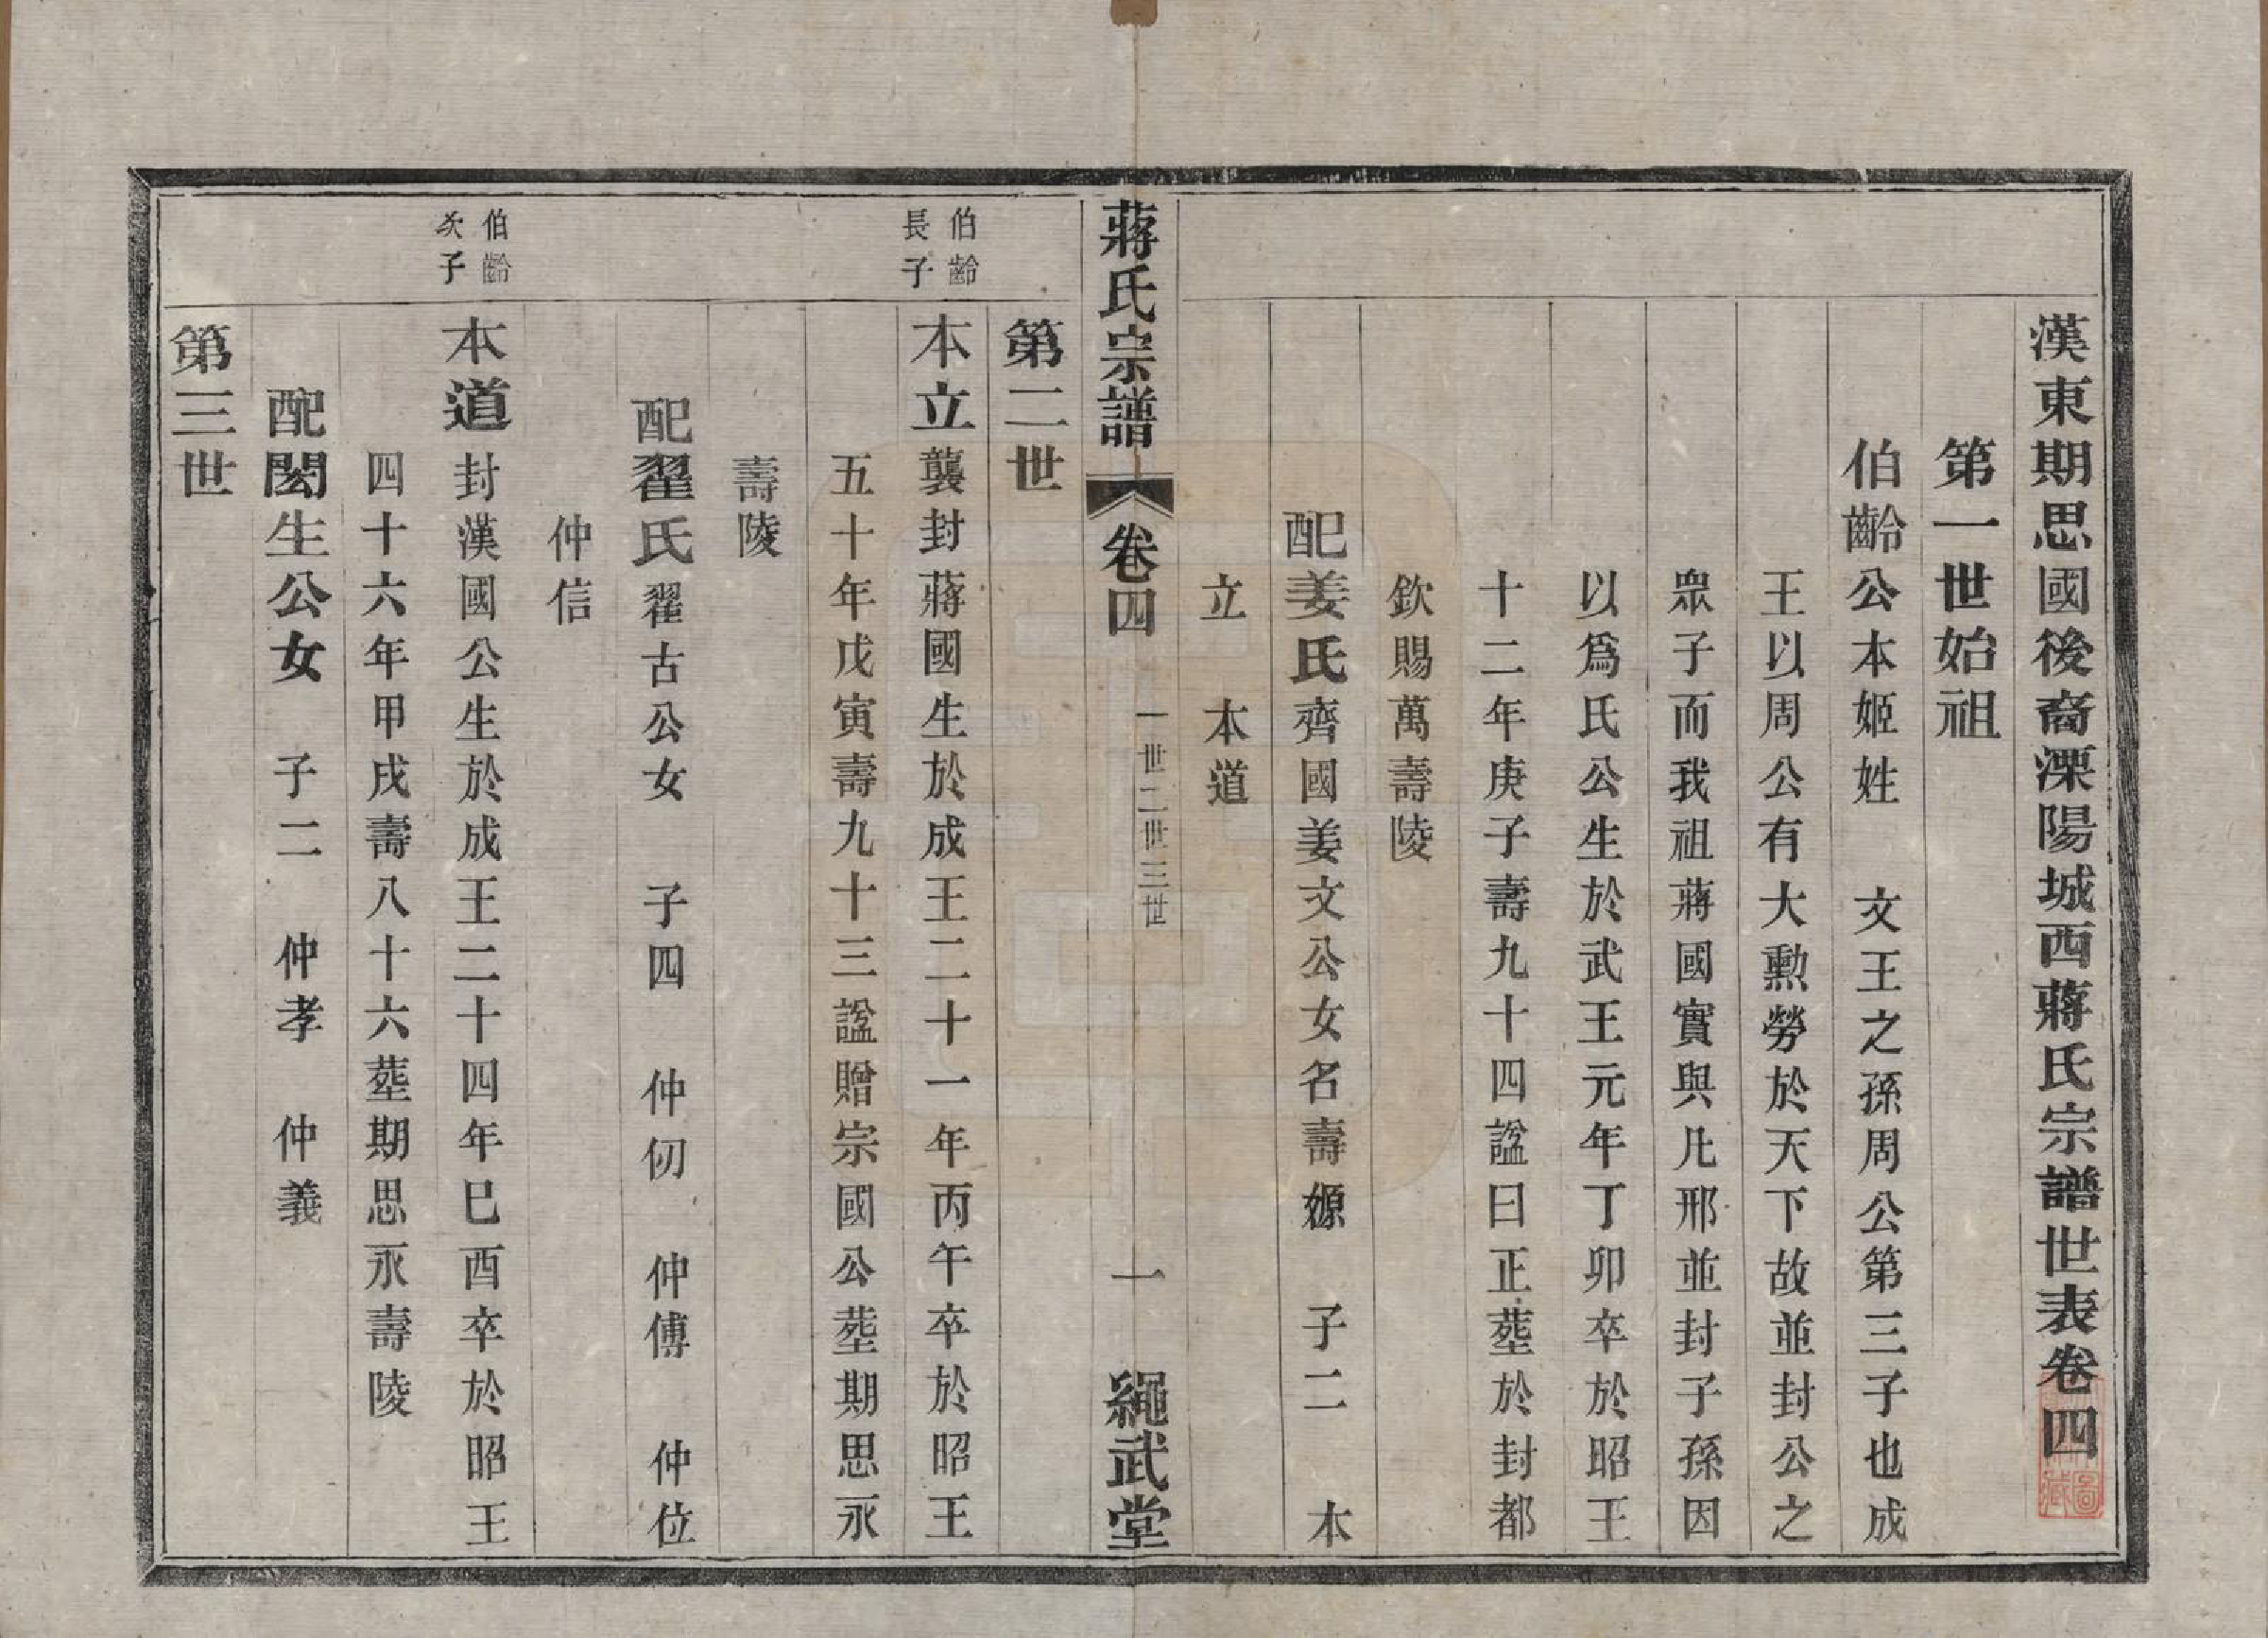 漢東期思國後裔溧陽城西蔣氏宗譜世表卷四
第一世始祖
伯齡公本姬姓　文王之孫周公第三子也成
王以周公有大勲勞於天下故並封公之
衆子而我祖蔣國實與凡邢並封子孫因
以爲氏公生於武王元年丁卯卒於昭王
十二年庚子壽九十四諡曰正塟於封都
欽賜萬壽陵
配姜氏齊國姜文公女名壽嫄　子二　本
立　本道
蔣氏宗譜　卷四　一世二世三世　一　繩武堂
第二世
伯齡長子
本立襲封蔣國生於成王二十一年丙午卒於昭王
五十年戊寅壽九十三諡贈宗國公塟期思永
壽陵
配翟氏翟古公女　子四　仲仞　仲傅　仲位
仲信
伯齡次子
本道封漢國公生於成王二十四年巳酉卒於昭王
四十六年甲戌壽八十六塟期思永壽陵
配閎生公女　子二　仲孝　仲義
第三世